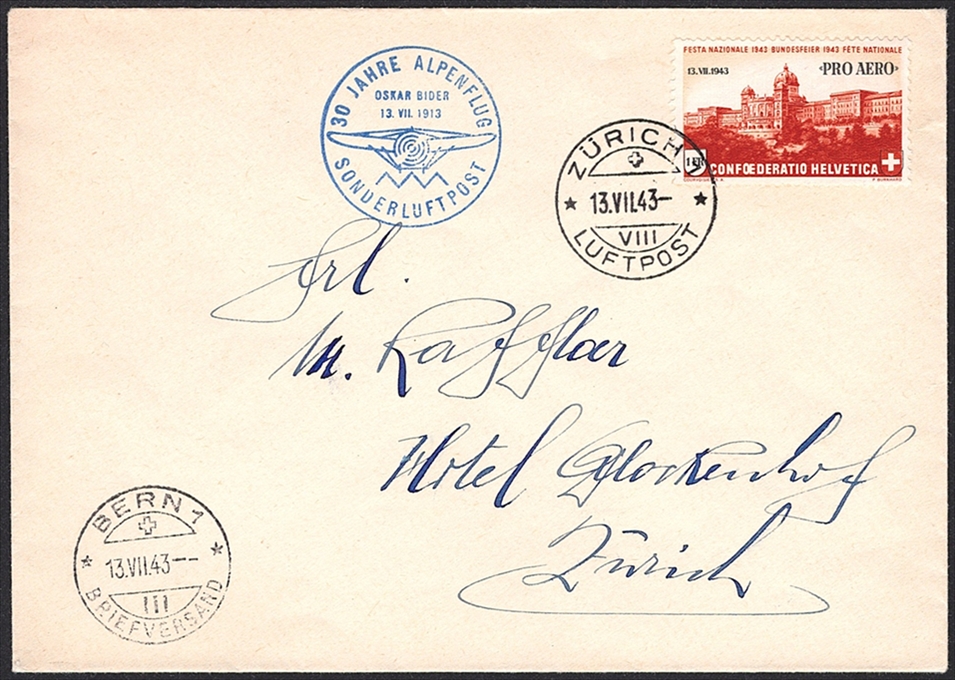 30 JAHRE ALPENFLUG
OSKAR BIDER
13. VII. 1913
SONDERLUFTPOST
FESTA NAZIONALE 1943 BUNDESFEIER 1943 FÊTE NATIONALE
13.VII.1943 «PRO AERO»
1 FR
CONFŒDERATIO HELVETICA
ZÜRICH 1
13.VII.43–
VIII
LUFTPOST
Frl.
M. Laffler
Hotel Glockenhof
Zürich
BERN 1
13.VII.43––
III
BRIEFVERSAND